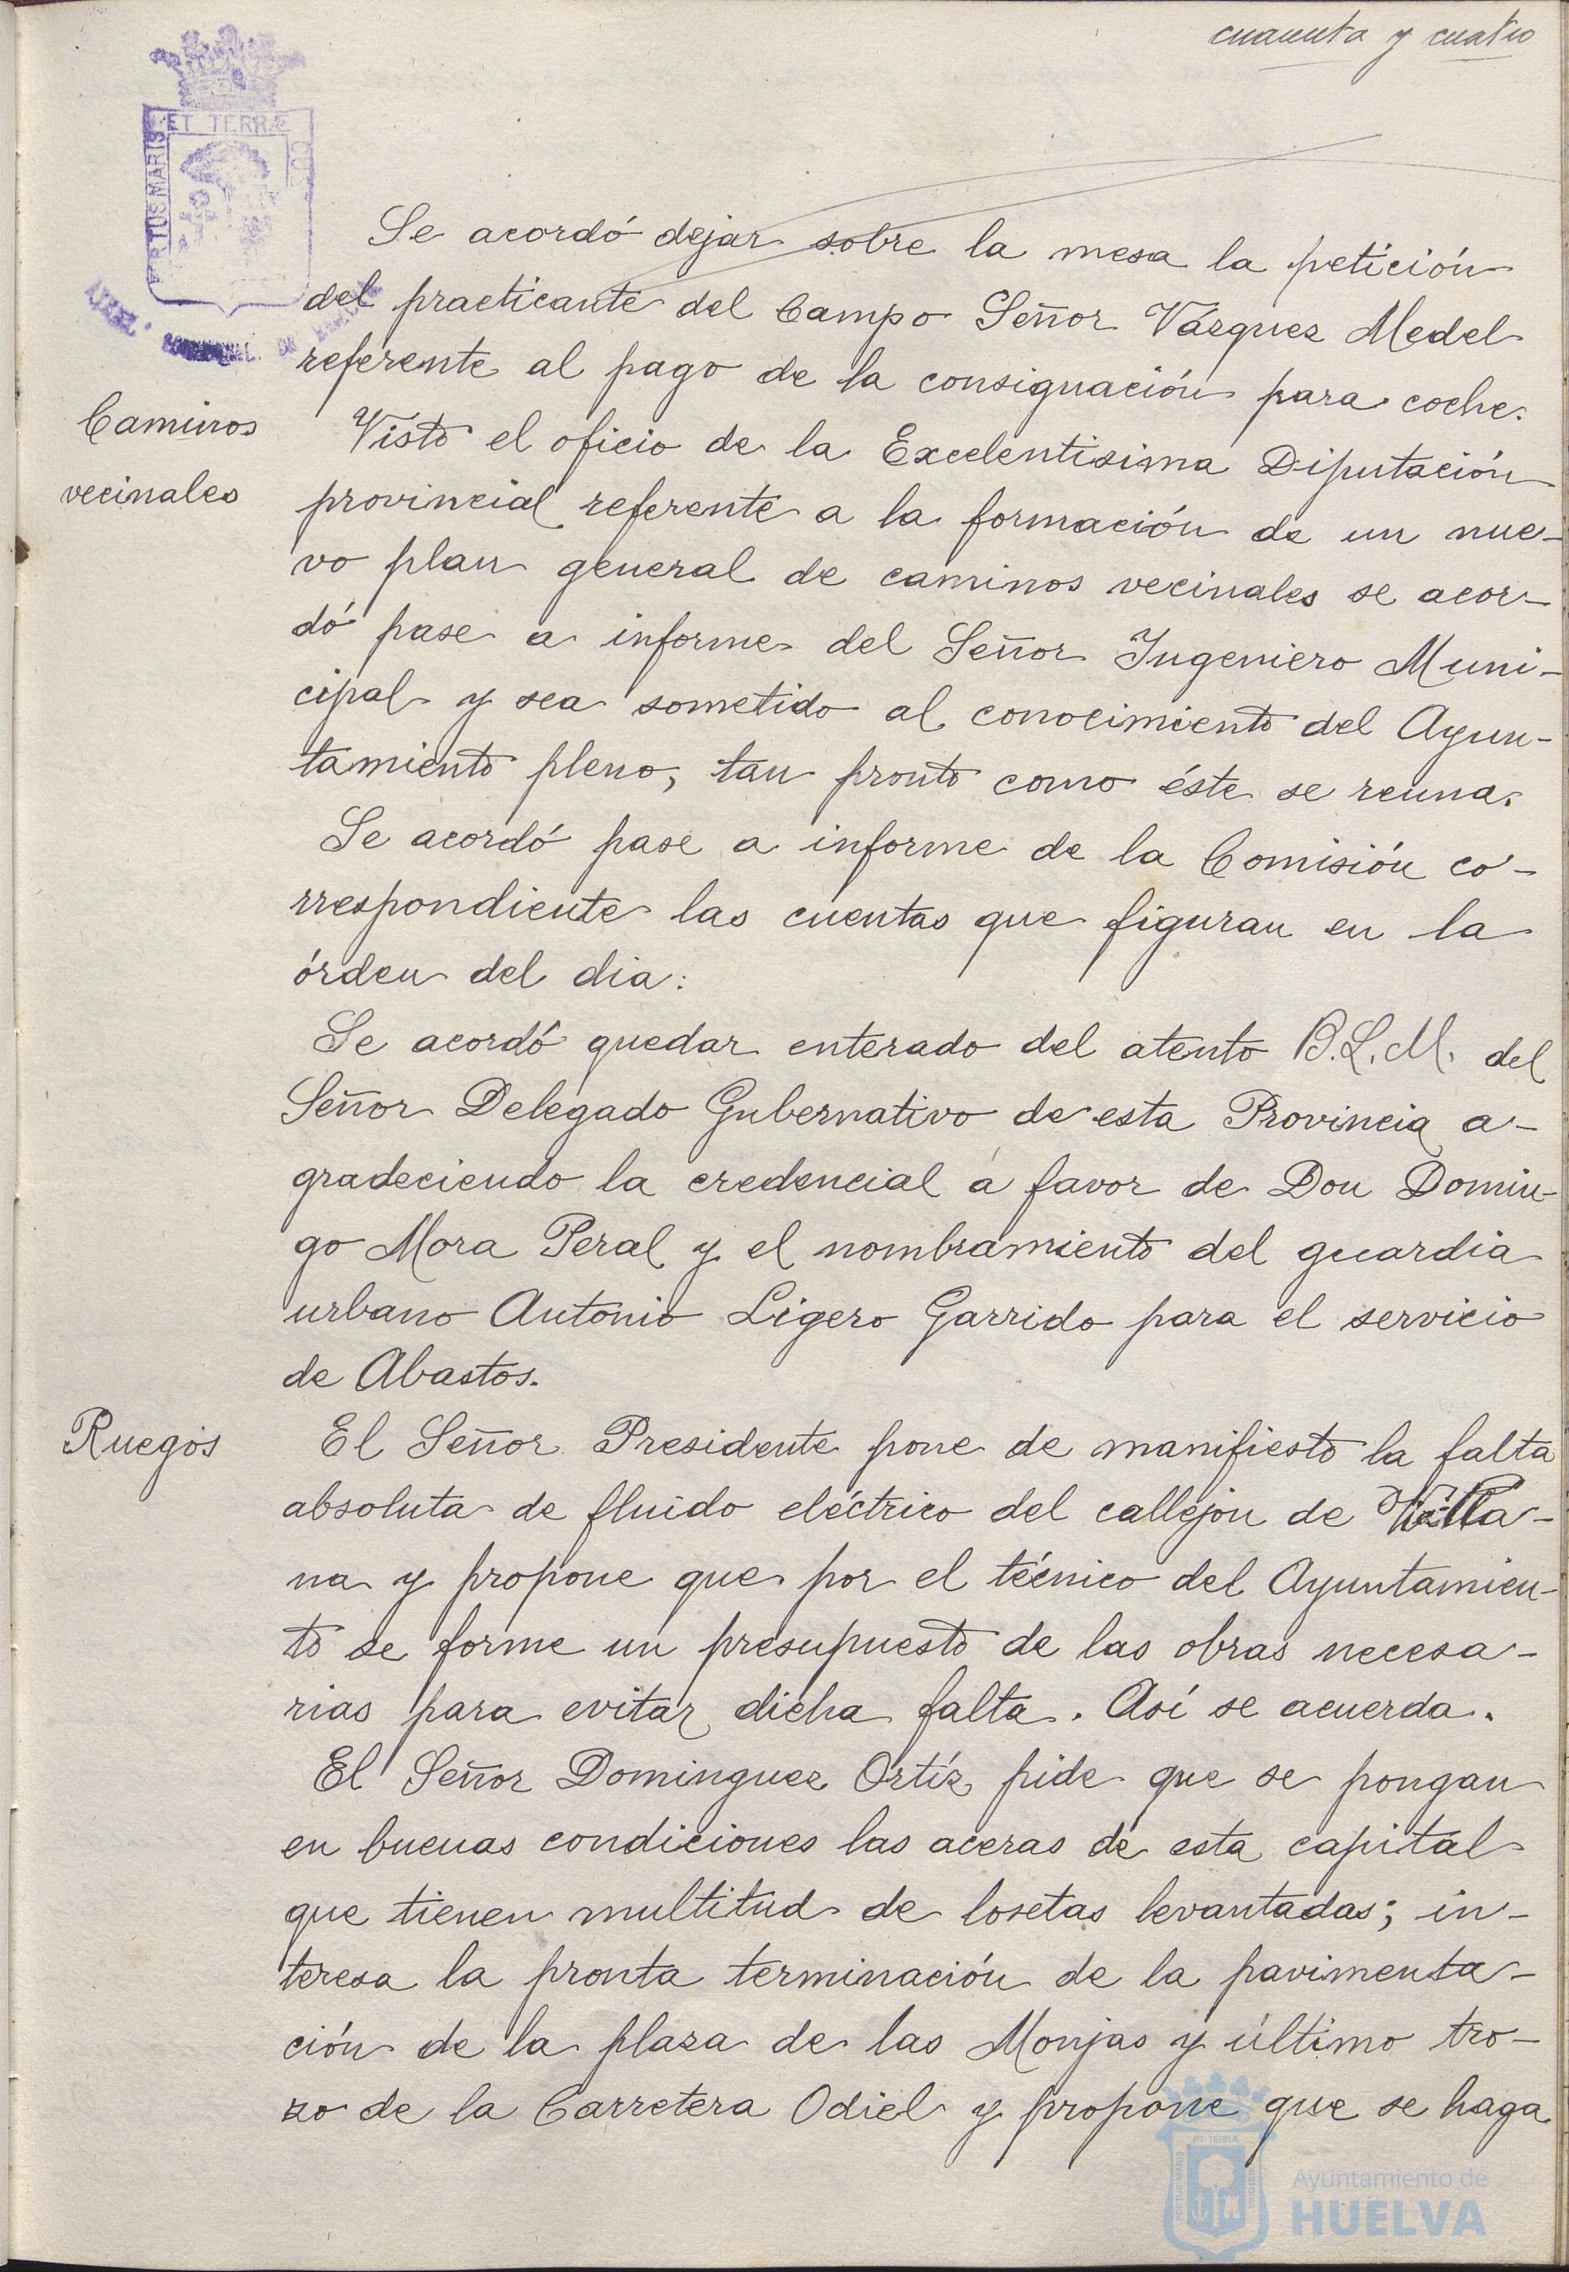 cuarenta y cuatro
PORTUS MARIS ET TERRÆ CUS
Se acordó dejar sobre la mesa la petición
del practicante del Campo Señor Vázquez Medel
referente al pago de la consignación para coche.
Caminos
vecinales
Visto el oficio de la Excelentisima Diputación
provincial referente a la formación de un nue-
vo plan general de caminos vecinales se acor-
dó pase a informe del Señor Ingeniero Muni-
cipal y sea sometido al conocimiento del Ayun-
tamiento pleno, tan pronto como éste se reuna.
Se acordó pase a informe de la Comisión co-
rrespondiente las cuentas que figuran en la
órden del dia.
Se acordó quedar enterado del atento B.L.M. del
Señor Delegado Gubernativo de esta Provincia a-
gradeciendo la credencial á favor de Don Domin-
go Mora Peral y el nombramiento del guardia
urbano Antonio Ligero Garrido para el servicio
de Abastos.
Ruegos
El Señor Presidente pone de manifiesto la falta
absoluta de fluido eléctrico del callejón de Villa-
na y propone que por el técnico del Ayuntamien-
to se forme un presupuesto de las obras necesa-
rias para evitar dicha falta. Así se acuerda.
El Señor Dominguez Ortíz pide que se pongan
en buenas condiciones las aceras de esta capital
que tienen multitud de losetas levantadas; in-
teresa la pronta terminación de la pavimenta-
ción de la plaza de las Monjas y último tro-
zo de la Carretera Odiel y propone que se haga
Ayuntamiento de
HUELVA